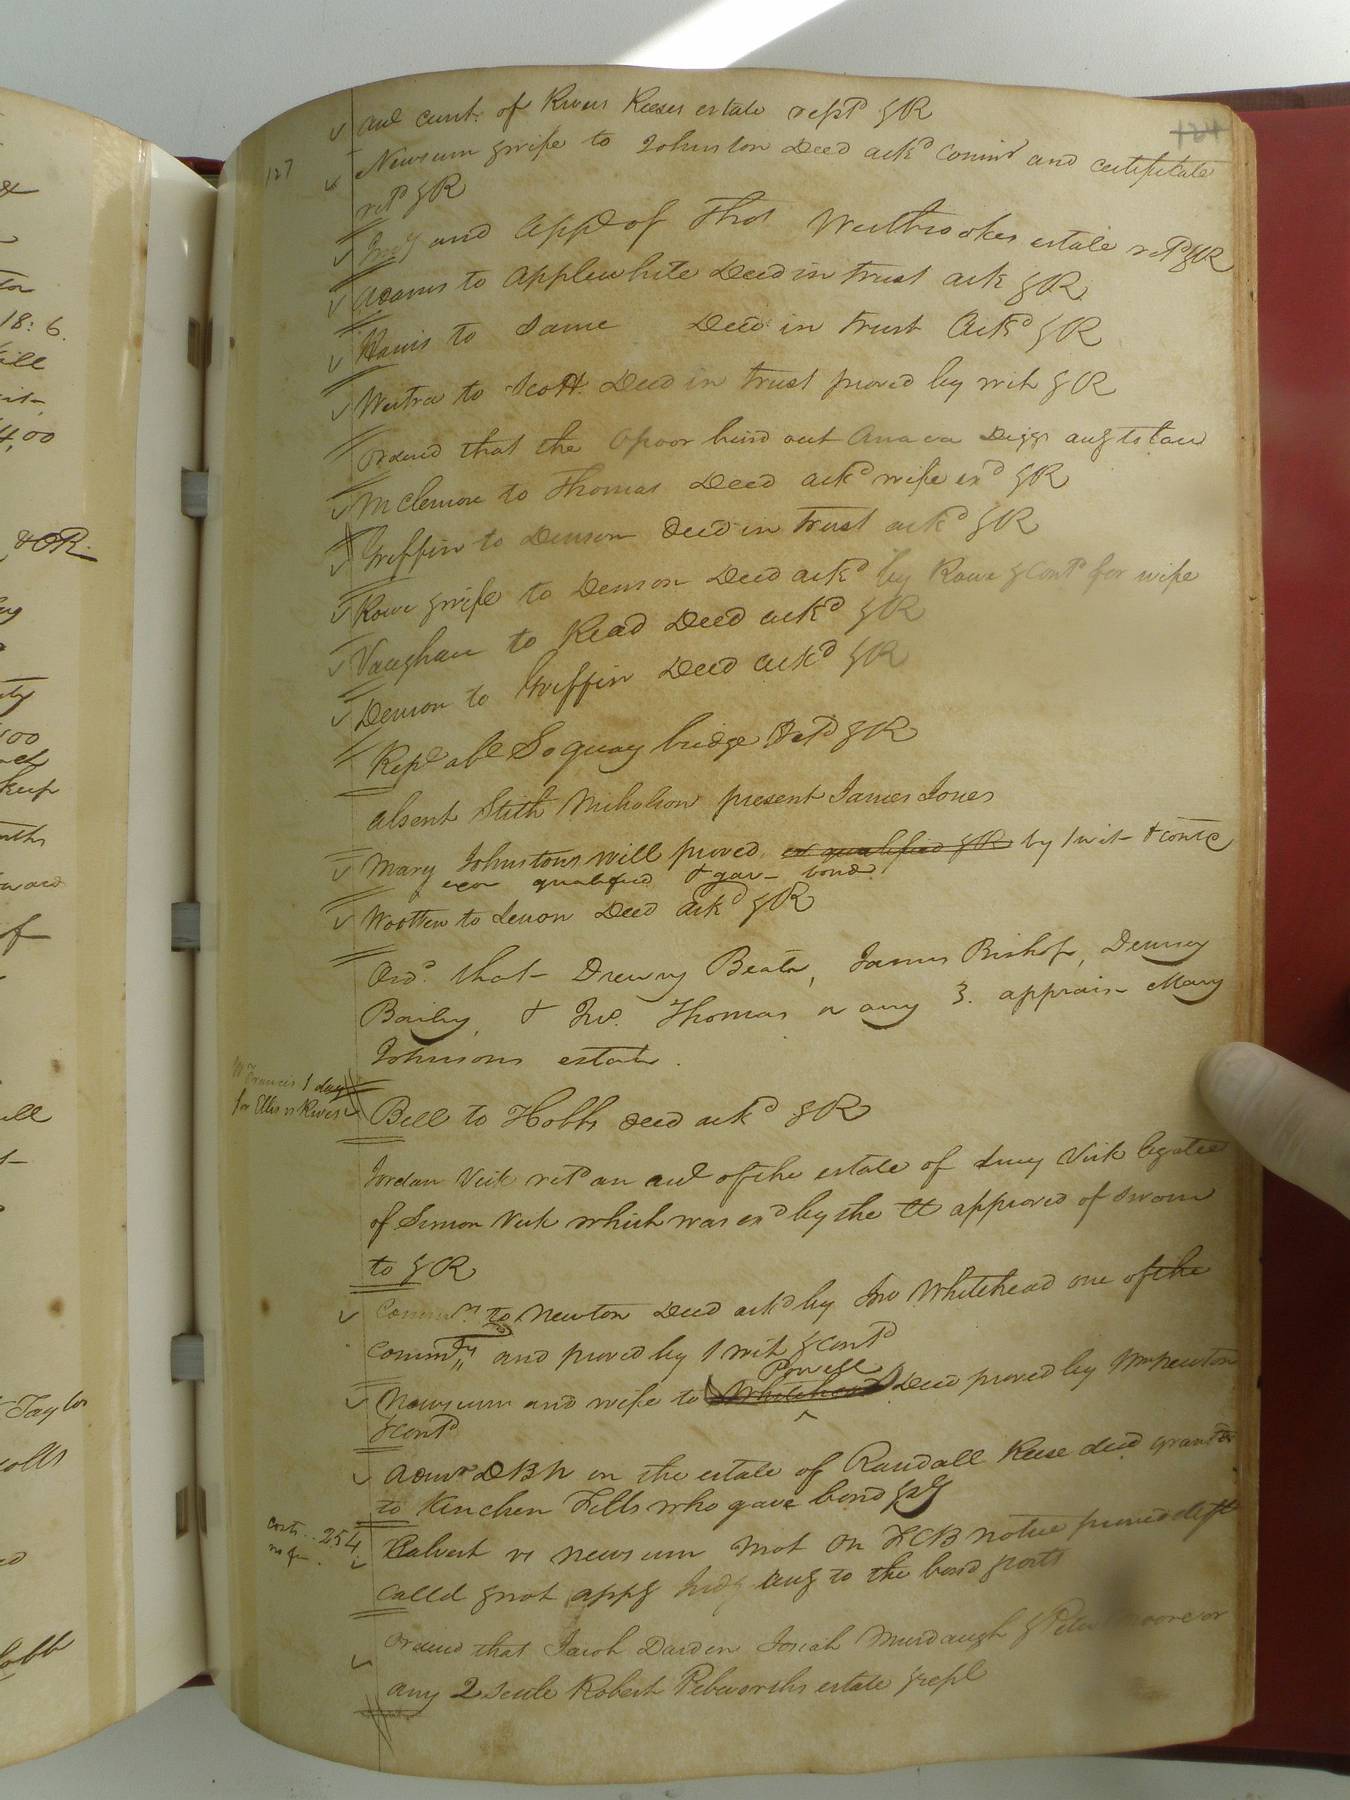 124
127
Aud acct. of Rivers Reeses estate rept & R
Newsum & wife to Johnston Deed ackd Commn and certificate
retd & R
Invy and appt of Thos Westbrookes estate retd & R
Adams to Applewhite Deed in trust ack & R
Harris to Same Deed in trust Ackd & R
Westra to Scott Deed in trust proved by wit & R
Ordered that the Opoor bind out Diggs aug to law
McLemore to Thomas Deed ackd wife exd & R
Griffin to Denson Deed in trust ackd & R
Rowe & wife to Denson Deed ackd by Rowe & Contd for wife
Vaughan to Read Deed ackd & R
Denson to Griffin Deed ackd & R
Rept abt Soquay bridge Retd & R
absent Stith Nicholson present James Jones
Mary Johnstons will proved ex qualified & R by 1 wit & contd
exor qualified & gav bond
Wootten to Lenon Deed Ackd & R
Ord. that Drewry Beaton, James Bishop, Denney
Bailey, & Jno. Thomas or any 3. apprais Mary
Johnsons estate.
Wm Francis 1 day
for Ellis vs Rives
Bell to Hobbs deed ackd & R
Jordan Vick retd an aud of the estate of Lucy Vick legatee
of Simon Vick which was exd by the Ct approved of sworn
to & R
Commrs. to Newton Deed ackd by Jno Whitehead one of the
Commrs and proved by 1 wit & Contd
Powell
Newsum and wife to Whitehead Deed proved by Wm Newton
& Contd
Admn DBN on the estate of Randall Reese decd granted
to Kinchen Fells who gave bond &c
Costs .. 254
no fn.
Calvert vs Newsum Mot On FCB notice proved deft
calld & not appg Judgt aug to the bond & costs
Ordered that Jacob Darden Josiah Murdaugh & Peter Moore or
any 2 settle Robert Pebworths estate & rept
18: 6
& OR.
Taylor